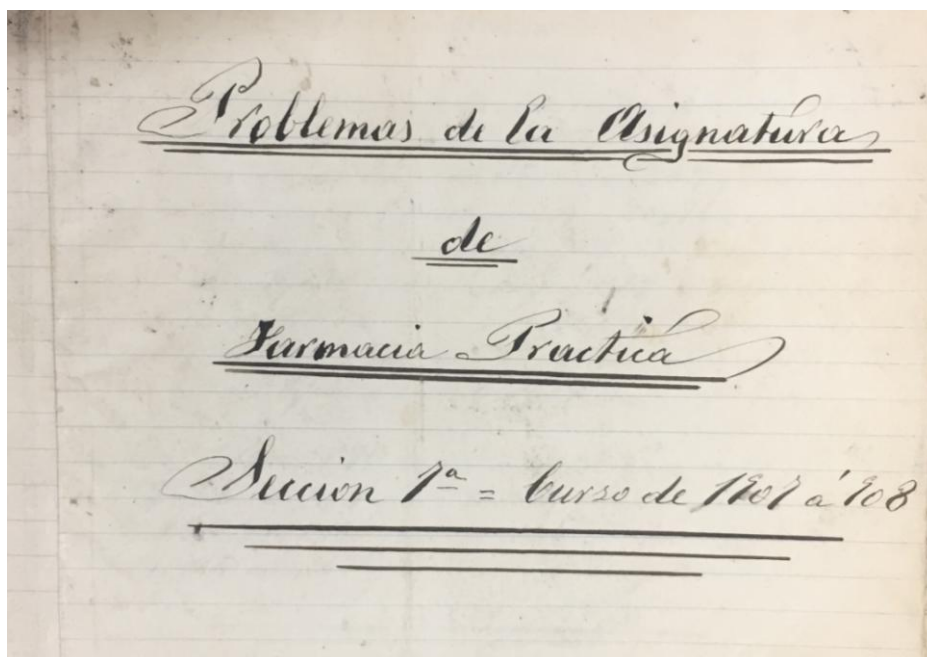 Problemas de la Asignatura
de
Farmacia Practica
Seccion 1ª = Curso de 1907 á 908